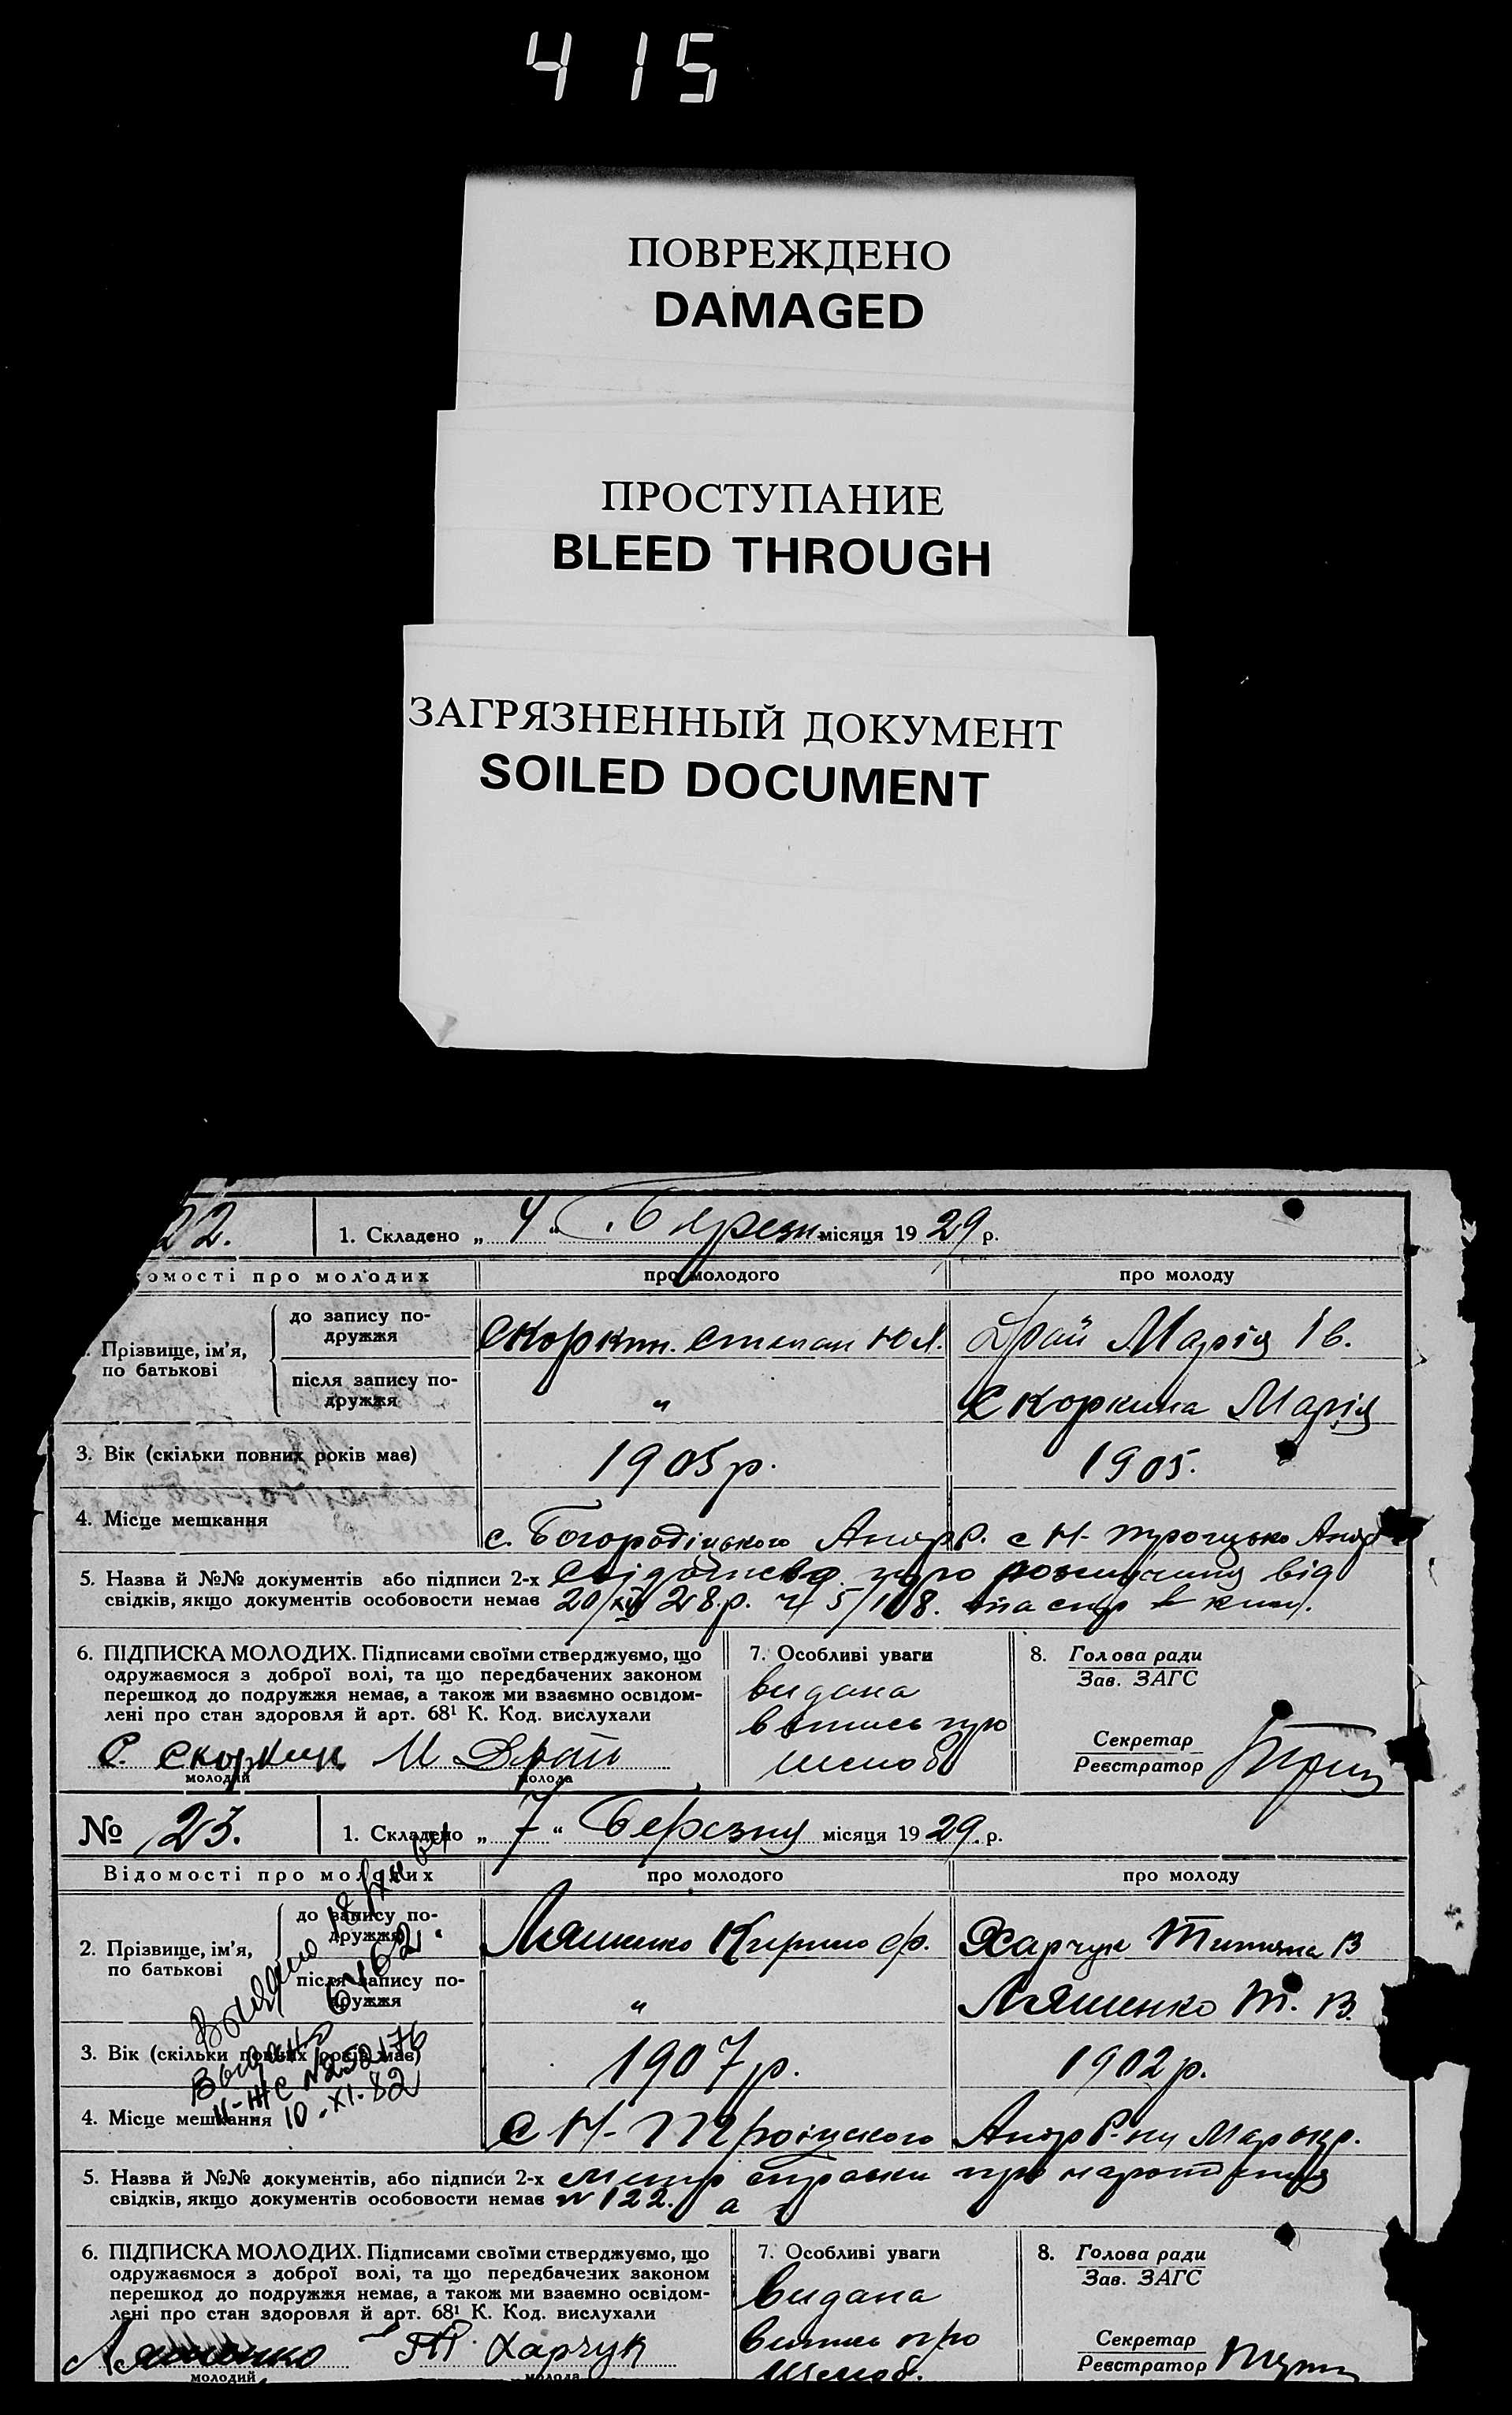 415
ПОВРЕЖДЕНО
DAMAGED
ПРОСТУПАНИЕ
BLEED THROUGH
ЗАГРЯЗНЕННЫЙ ДОКУМЕНТ
SOILED DOCUMENT
22. 1. Складено „ 4 “ місяця 19 29 р.
омості про молодих про молодого про молоду
до запису по-
дружжя
Скоркин. Степан Юл. Драй Марія Ів.
Прізвище, ім'я,
по батькові
після запису по-
дружжя
" Скоркина Марія
3. Вік (скільки повних років має) 1905 р. 1905.
4. Місце мешкання с. Богородіцького Андр с Н-
5. Назва й №№ документів або підписи 2-х про від
свідків, якщо документів особовости немає 20/XII 28.р. ч 5/108.
6. ПІДПИСКА МОЛОДИХ. Підписами своїми стверджуємо, що
одружаємося з доброї волі, та що передбачених законом
перешкод до подружжя немає, а також ми взаємно освідом-
лені про стан здоровля й арт. 68¹ К. Код. вислухали
С. Скоркин М Драй
молодий молода
7. Особливі уваги
видана
випись про
шлюб
8. Голова ради
Зав. ЗАГС
Секретар
Реєстратор
№ 23. 1. Складено „ 7 “ Березня місяця 19 29. р.
Відомості про молодих про молодого про молоду
до запису по-
дружжя
Ляшенко Кирило Ф. Харчук Титяна В
2. Прізвище, ім'я,
по батькові
після запису по-
дружжя
" Ляшенко Т. В.
3. Вік (скільки повних років має) 1907 р. 1902 р.
4. Місце мешкання с Н-Троіцкого Андр Р-ну Маръокр.
Выдано
Выдано
II-ЖС №252176
10.XI.82
5. Назва й №№ документів, або підписи 2-х про
свідків, якщо документів особовости немає № 122.
6. ПІДПИСКА МОЛОДИХ. Підписами своїми стверджуємо, що
одружаємося з доброї волі, та що передбачених законом
перешкод до подружжя немає, а також ми взаємно освідом-
лені про стан здоровля й арт. 68¹ К. Код. вислухали
Ляшенко Т Харчук
молодий молода
7. Особливі уваги
видана
випись про
шлюб.
8. Голова ради
Зав. ЗАГС
Секретар
Реєстратор